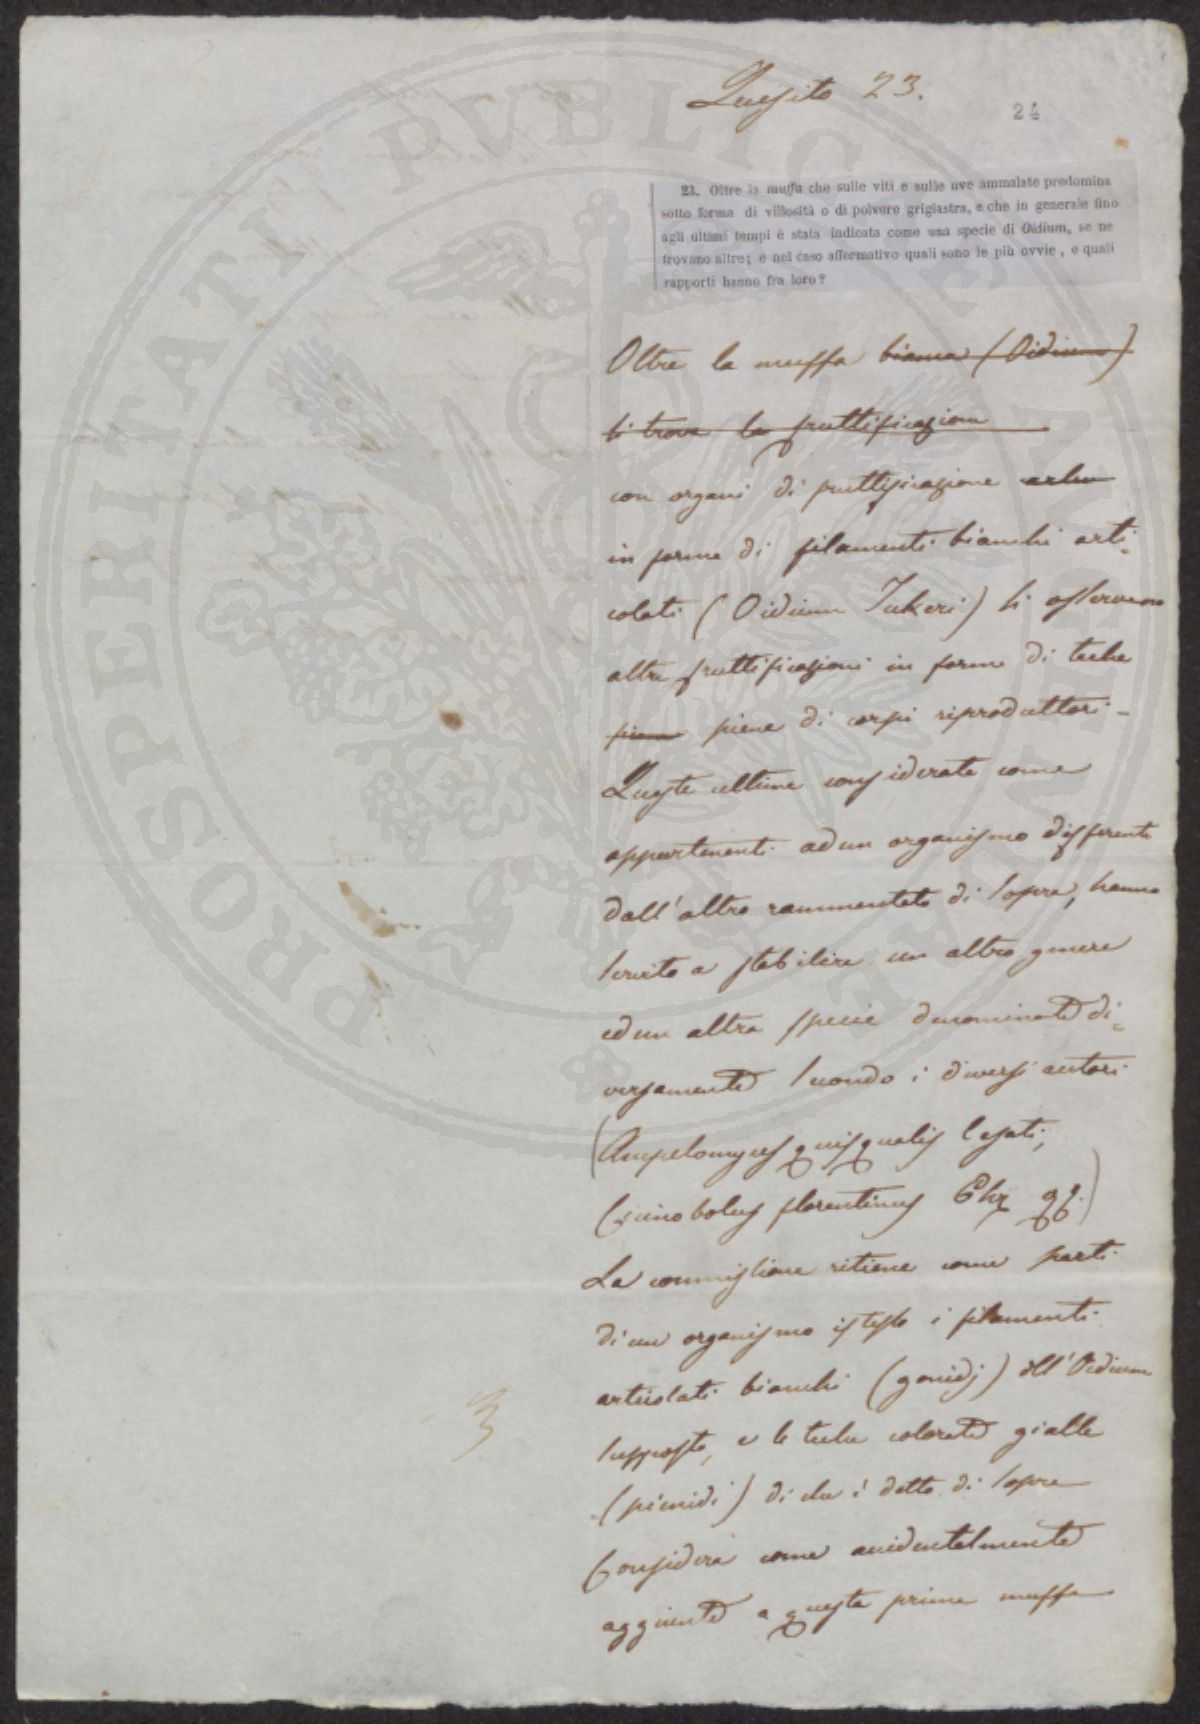 Quesito 23.
24
23. Oltre la muffa che sulle viti e sulle uve ammalate predomina
sotto forma di villosità o di polvere grigiastra, e che in generale fino
agli ultimi tempi è stata indicata come una specie di Oidium, se ne
trovano altre; e nel caso affermativo quali sono le più ovvie, e quali
rapporti hanno fra loro?
Oltre la muffa bianca (Oidium)
si trova la fruttificazione
con organi di fruttificazione
in forma di filamenti bianchi arti-
colati (Oidium Tukeri) si osservano
altre fruttificazioni in forma di teche
piene di corpi riproduttori -
Queste ultime considerate come
appartenenti ad un organismo differente
dall'altro rammentato di sopra, hanno
servito a stabilire un altro genere
ed un altra specie denominate di=
versamente secondo i diversi autori
(Ampelomyces quisqualis Cesati,
Cicinobolus florentinus Ehr)
La commissione ritiene come parti
di un organismo istesso i filamenti
articolati bianchi (gonidj) dell'Oidium
supposto, e le teche colorate gialle
(picnidi) di che è detto di sopra
Considera come accidentalmente
aggiunte a questa prima muffa
3
PROSPERITATI PVBLICAE AVGENDAE